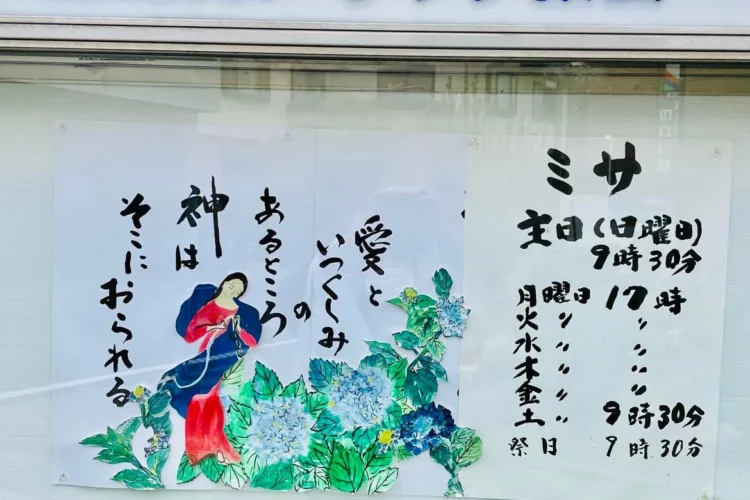 愛と
いつくしみ
の
あるところ
神は
そこに
おられる
ミサ
主日(日曜日)
9時30分
月曜日 17時
火 〃 〃
水 〃 〃
木 〃 〃
金 〃 〃
土 〃 9時30分
祭日 9時30分